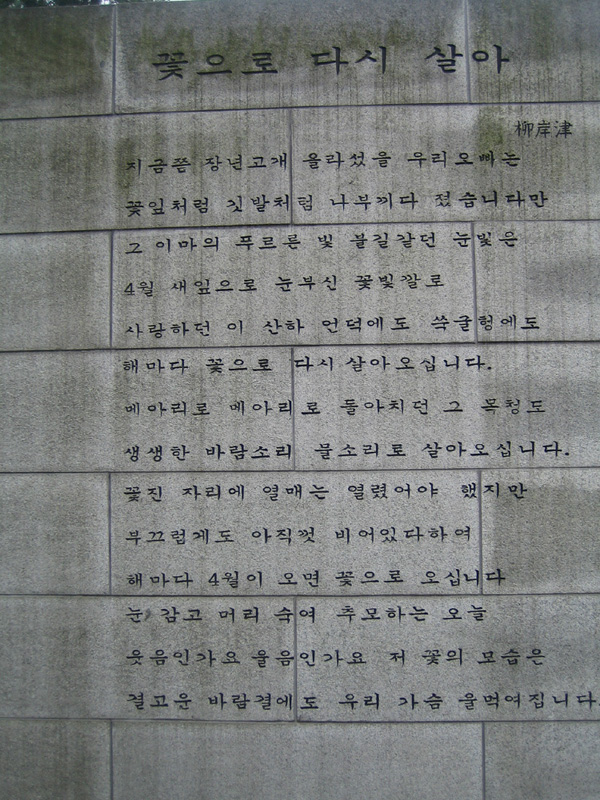 꽃으로 다시 살아
柳岸津
지금쯤 장년고개 올라섰을 우리오빠는
꽃잎처럼 깃발처럼 나부끼다 졌습니다만
그 이마의 푸르른 빛 불길같던 눈빛은
4월 새잎으로 눈부신 꽃빛깔로
사랑하던 이 산하 언덕에도 쑥굴헝에도
해마다 꽃으로 다시 살아오십니다.
메아리로 메아리로 돌아치던 그 목청도
생생한 바람소리 물소리로 살아오십니다.
꽃진 자리에 열매는 열렸어야 했지만
부끄럽게도 아직껏 비어있다하여
해마다 4월이 오면 꽃으로 오십니다
눈 감고 머리 숙여 추모하는 오늘
웃음인가요 울음인가요 저 꽃의 모습은
결고운 바람결에도 우리 가슴 울먹여집니다.